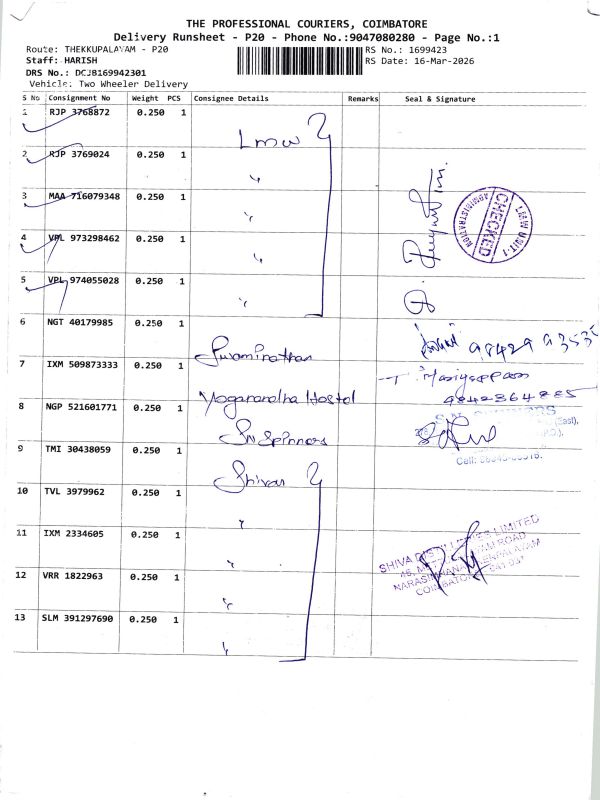 THE PROFESSIONAL COURIERS, COIMBATORE
Delivery Runsheet - P20 - Phone No.:9047080280 - Page No.:1
Route: THEKKUPALAYAM - P20
RS No.: 1699423
Staff: HARISH
RS Date: 16-Mar-2026
DRS No.: DCJB169942301
Vehicle: Two Wheeler Delivery
S No Consignment No Weight PCS Consignee Details Remarks Seal & Signature
1 RJP 3768872 0.250 1
Lmw
2 RJP 3769024 0.250 1
"
3 MAA 716079348 0.250 1
"
LMW UNIT-1
CHECKED
ADMINISTRATION
4 VPL 973298462 0.250 1
"
5 VPL 974055028 0.250 1
"
6 NGT 40179985 0.250 1
Swaminathan
98429 93535
7 IXM 509873333 0.250 1
Yoganandha Hostel
T. Mariyappan
9842364885
8 NGP 521601771 0.250 1
Sri Spinners
(East),
9 TMI 30438059 0.250 1
Shivas
Cell:
10 TVL 3979962 0.250 1
"
11 IXM 2334605 0.250 1
"
SHIVA DISTILLERIES LIMITED
NARASIMHANAICKENPALAYAM
COIMBATORE
12 VRR 1822963 0.250 1
"
13 SLM 391297690 0.250 1
"